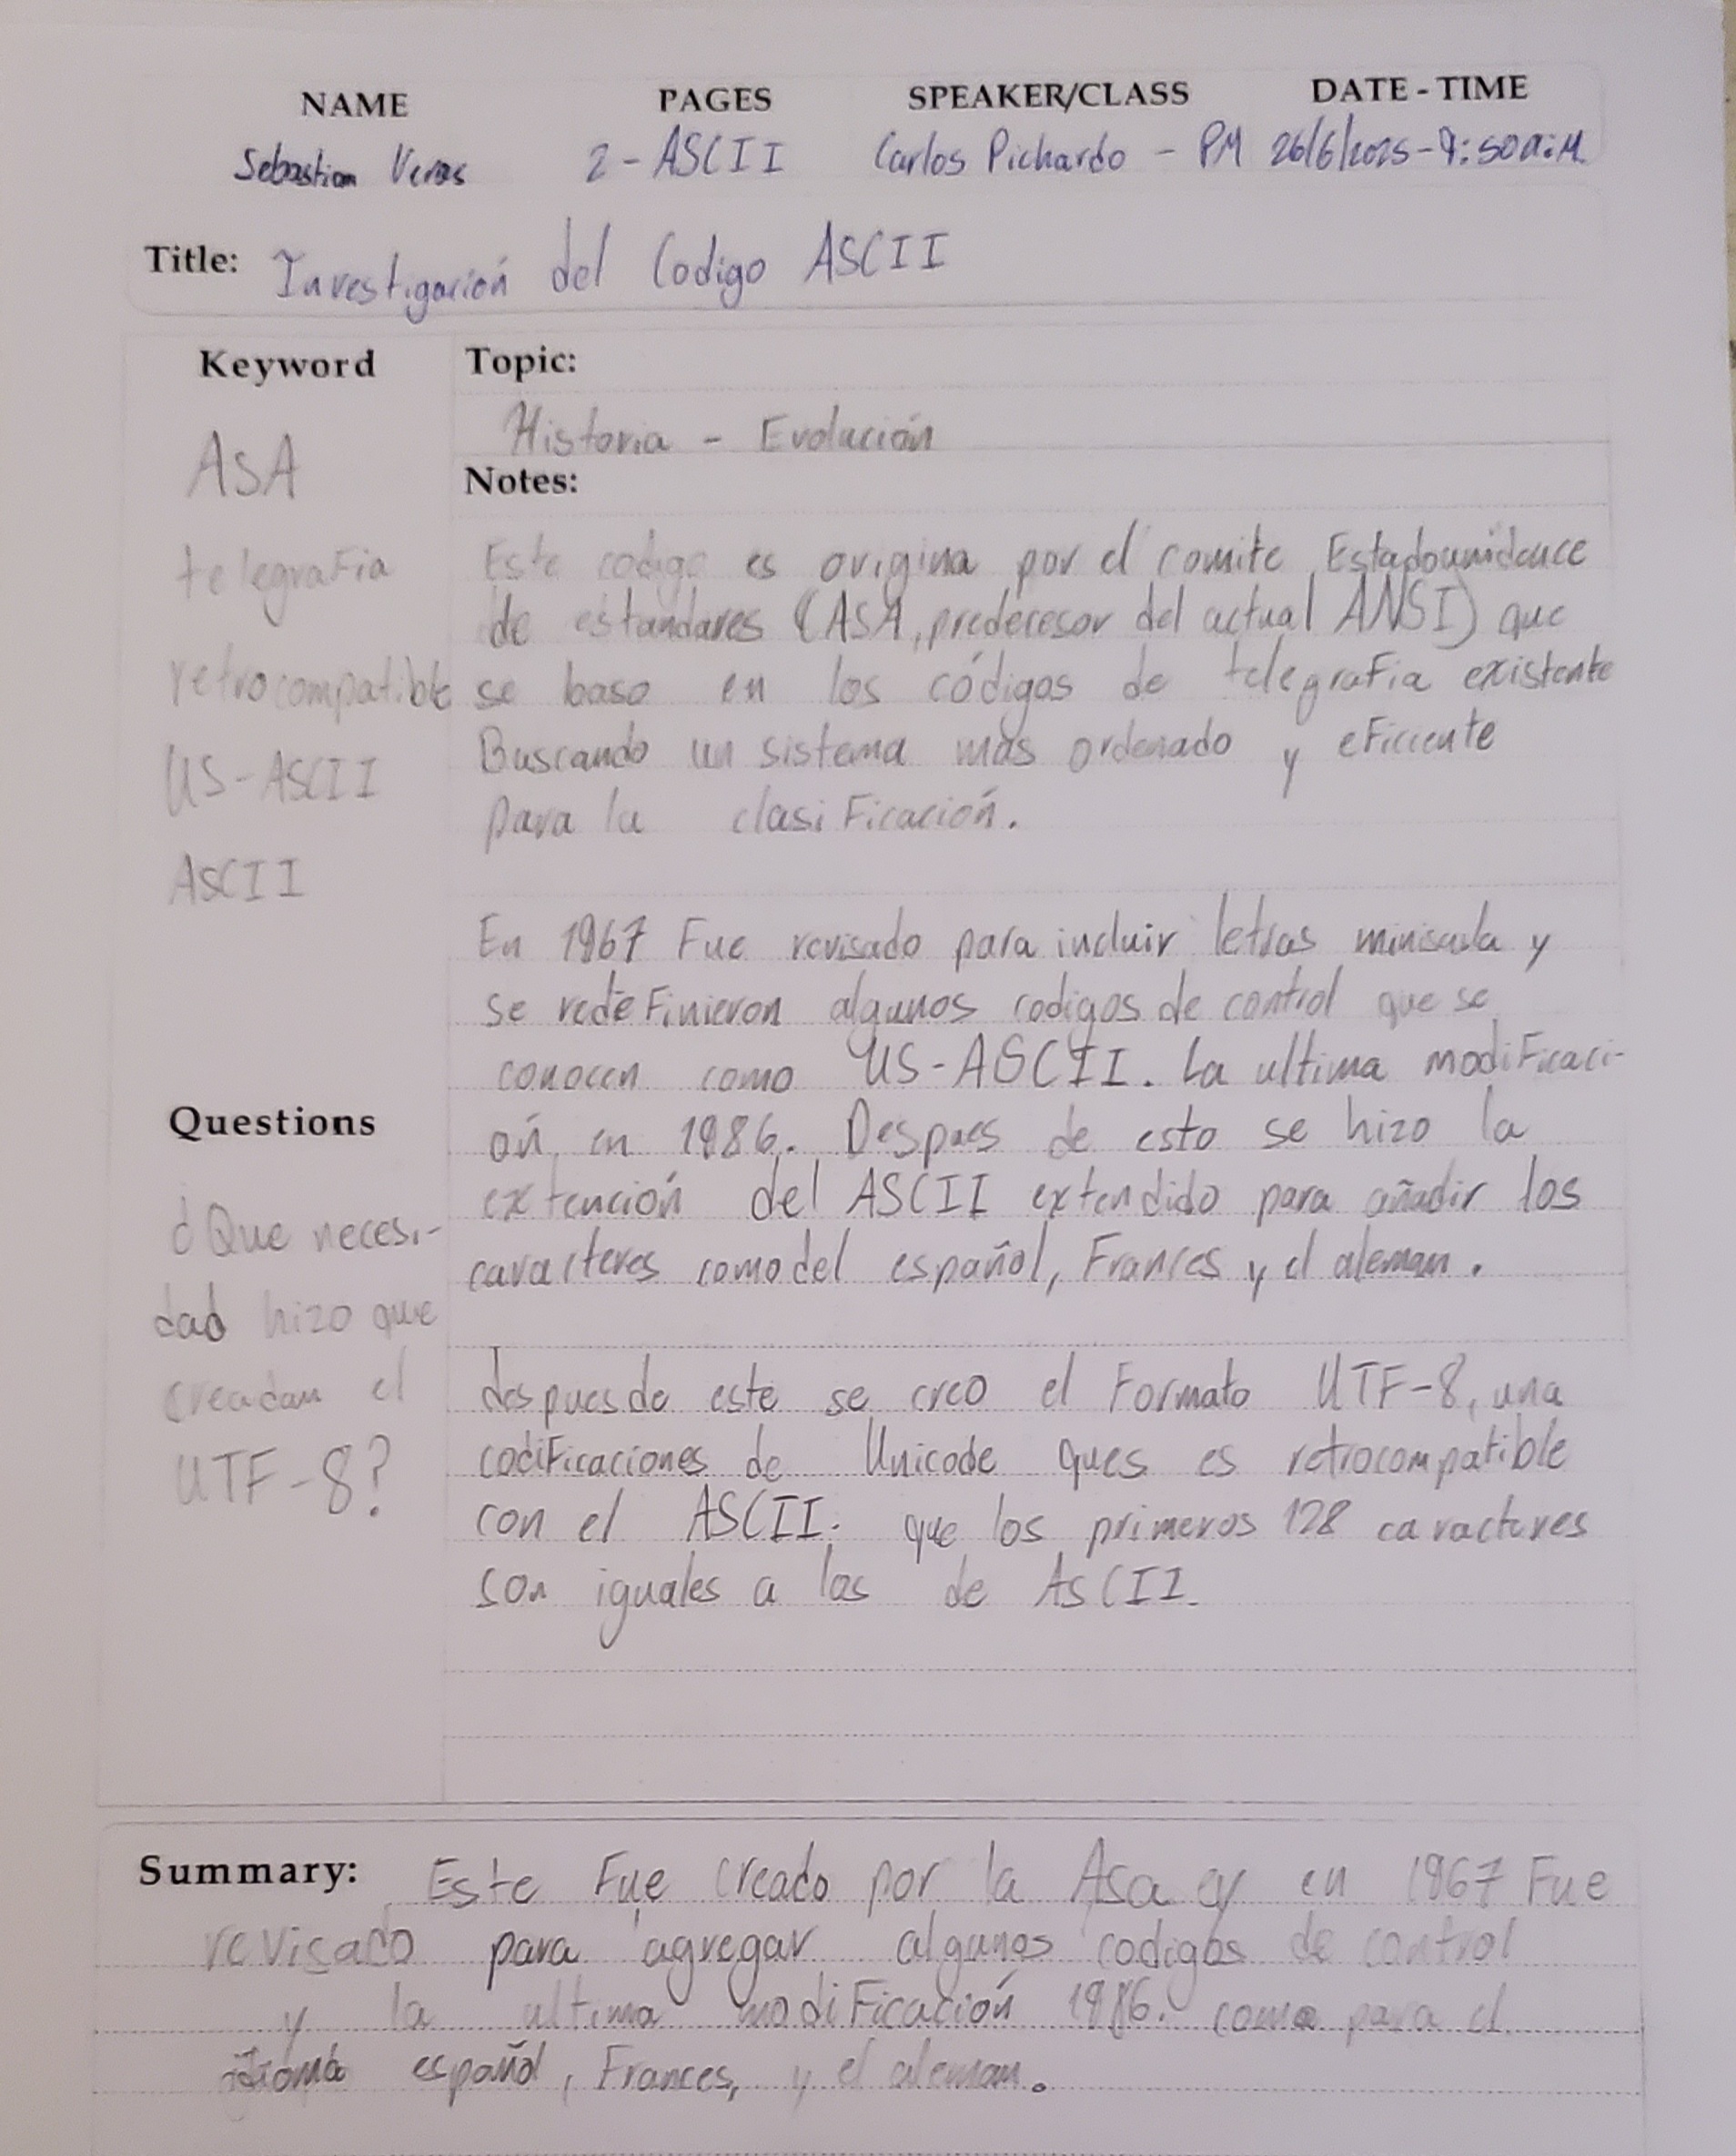 NAME PAGES SPEAKER/CLASS DATE - TIME
Sebastian Veras 2 - ASCII Carlos Pichardo - PM 26/6/2025 - 9:50 a.M
Title: Investigación del Codigo ASCII
Keyword
ASA
telegrafia
retrocompatible
US-ASCII
ASCII
Questions
¿Que necesi-
dad hizo que
creadan el
UTF-8?
Topic:
Historia - Evolución
Notes:
Este codigo es origina por el comite Estadounidence
de estandares (ASA, predecesor del actual ANSI) que
se baso en los códigos de telegrafia existente
Buscando un sistema mas ordenado y eficiente
para la clasificación.
En 1967 Fue revisado para incluir letras miniscula y
se redefinieron algunos codigos de control que se
conocen como US-ASCII. La ultima modificaci-
ón en 1986. Despues de esto se hizo la
extención del ASCII extendido para añadir los
caracteres como del español, Frances y el aleman.
despues de este se creo el Formato UTF-8, una
codificaciones de Unicode ques es retrocompatible
con el ASCII. que los primeros 128 caracteres
son iguales a los de ASCII.
Summary: Este Fue creado por la Asa y en 1967 Fue
revisado para agregar algunos codigos de control
y la ultima modificación 1986. como para el
idioma español, Frances, y el aleman.